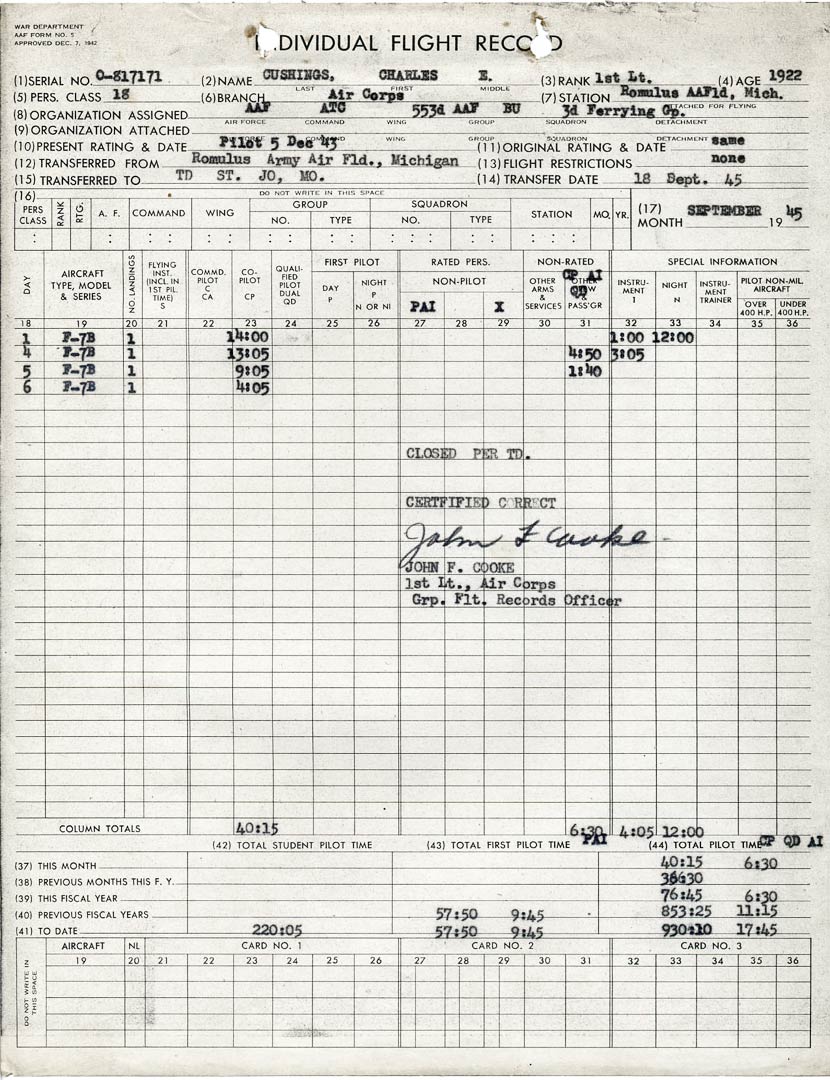 WAR DEPARTMENT
AAF FORM NO. 5
APPROVED DEC. 7, 1942
INDIVIDUAL FLIGHT RECORD
(1) SERIAL NO. O-817171 (2) NAME CUSHINGS, CHARLES E. (3) RANK 1st Lt. (4) AGE 1922
LAST FIRST MIDDLE
(5) PERS. CLASS 18 (6) BRANCH Air Corps (7) STATION Romulus AAFld, Mich.
(8) ORGANIZATION ASSIGNED AAF ATC 553d AAF BU 3d Ferrying Gp. ATTACHED FOR FLYING
AIR FORCE COMMAND WING GROUP SQUADRON DETACHMENT
(9) ORGANIZATION ATTACHED
AIR FORCE COMMAND WING GROUP SQUADRON DETACHMENT
(10) PRESENT RATING & DATE Pilot 5 Dec 43 (11) ORIGINAL RATING & DATE same
(12) TRANSFERRED FROM Romulus Army Air Fld., Michigan (13) FLIGHT RESTRICTIONS none
(15) TRANSFERRED TO TD ST. JO, MO. (14) TRANSFER DATE 18 Sept. 45
(16) DO NOT WRITE IN THIS SPACE
PERS CLASS RANK RTG. A. F. COMMAND WING GROUP NO. TYPE SQUADRON NO. TYPE STATION MO. YR. (17) MONTH SEPTEMBER 19 45
DAY AIRCRAFT TYPE, MODEL & SERIES NO. LANDINGS FLYING INST. (INCL. IN 1ST PIL. TIME) S COMMD. PILOT C CA CO-PILOT CP QUALIFIED PILOT DUAL QD FIRST PILOT DAY P NIGHT P N OR NI RATED PERS. NON-PILOT PAI X NON-RATED OTHER ARMS & SERVICES CP AI QD OTHER CREW & PASS'GR SPECIAL INFORMATION INSTRUMENT I NIGHT N INSTRUMENT TRAINER PILOT NON-MIL. AIRCRAFT OVER 400 H.P. UNDER 400 H.P.
18 19 20 21 22 23 24 25 26 27 28 29 30 31 32 33 34 35 36
1 F-7B 1 14:00 1:00 12:00
4 F-7B 1 13:05 4:50 3:05
5 F-7B 1 9:05 1:40
6 F-7B 1 4:05
CLOSED PER TD.
CERTFIFIED CORRECT
John F Cooke
JOHN F. COOKE
1st Lt., Air Corps
Grp. Flt. Records Officer
COLUMN TOTALS 40:15 6:30 4:05 12:00
(42) TOTAL STUDENT PILOT TIME (43) TOTAL FIRST PILOT TIME PAI (44) TOTAL PILOT TIME CP QD AI
(37) THIS MONTH 40:15 6:30
(38) PREVIOUS MONTHS THIS F. Y. 36:30
(39) THIS FISCAL YEAR 76:45 6:30
(40) PREVIOUS FISCAL YEARS 57:50 9:45 853:25 11:15
(41) TO DATE 220:05 57:50 9:45 930:10 17:45
DO NOT WRITE IN THIS SPACE AIRCRAFT NL CARD NO. 1 CARD NO. 2 CARD NO. 3
19 20 21 22 23 24 25 26 27 28 29 30 31 32 33 34 35 36